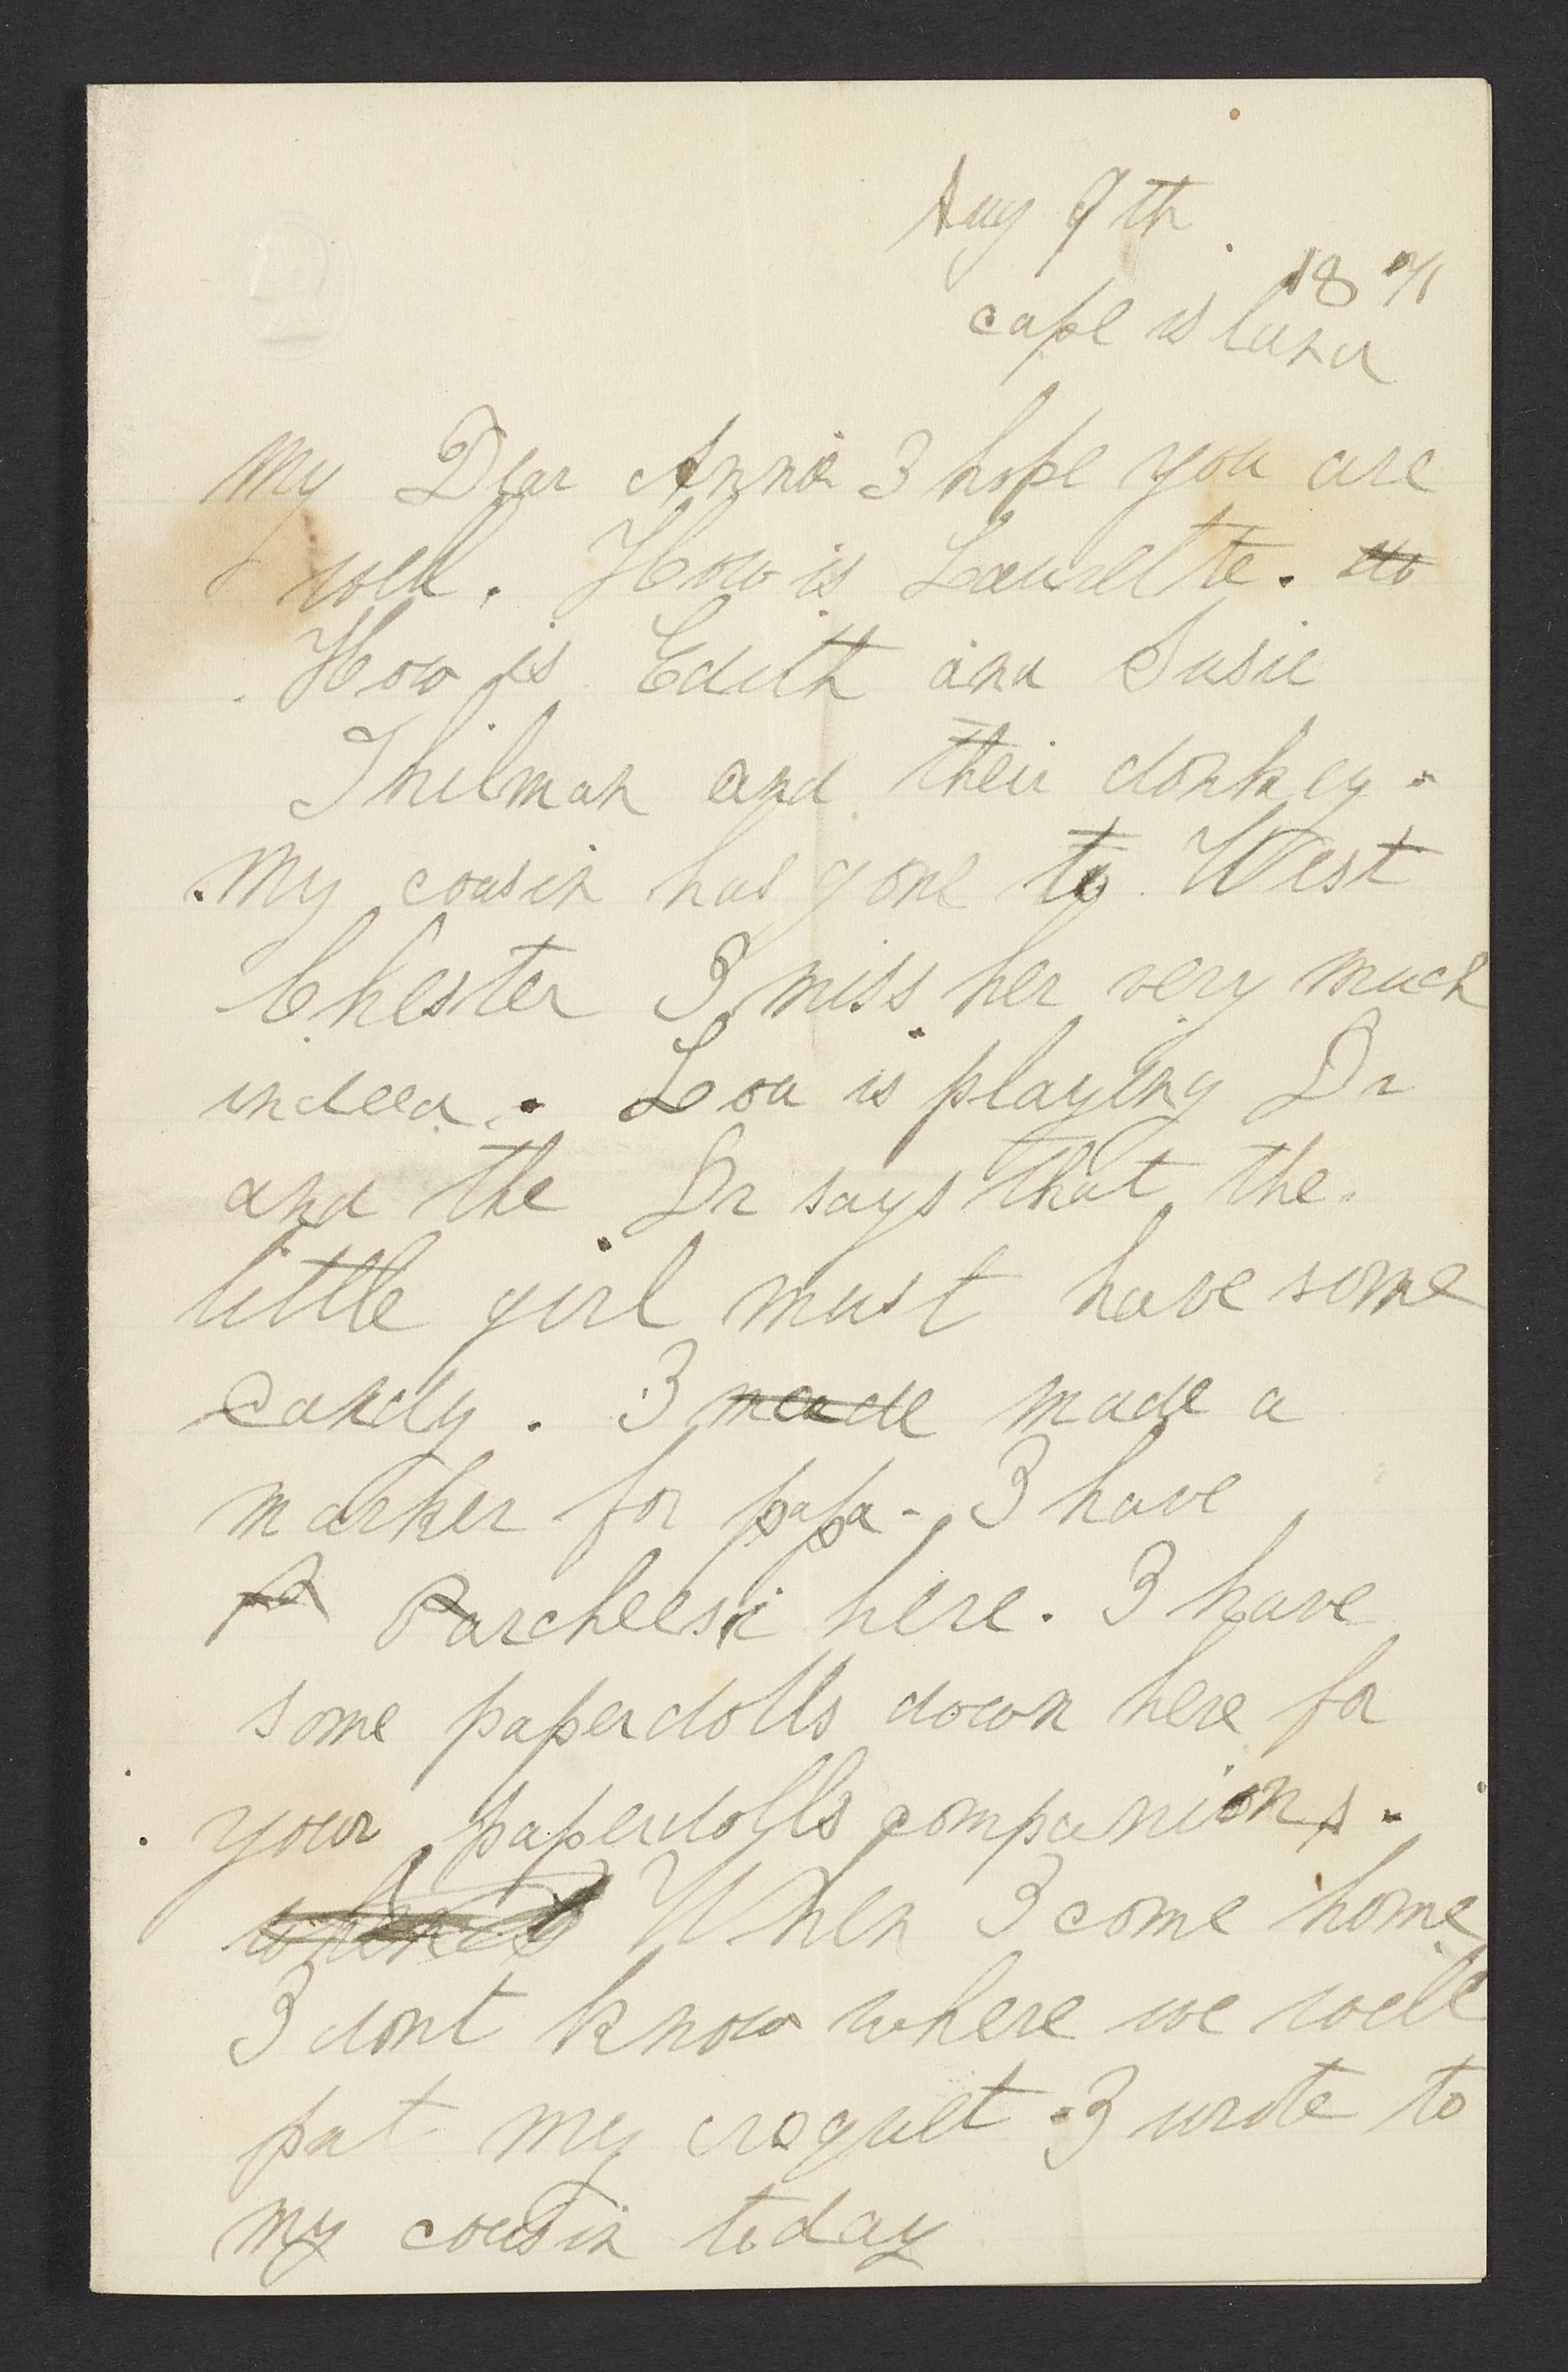 Aug 9th
1871
cape island
My Dear Anna I hope you are
well. How is Laurette. Ho
How is Edith and Susie
Thilman and their donkey.
My cousin has gone to West
Chester I miss her very much
indeed. Lou is playing Dr
and the Dr says that the
little girl must have some
candy. I made made a
marker for papa. I have
Pa Parcheesi here. I have
some paperdolls down here for
your paperdolls companions.
When I come home
I dont know where we will
put my croquet. I wrote to
my cousin today